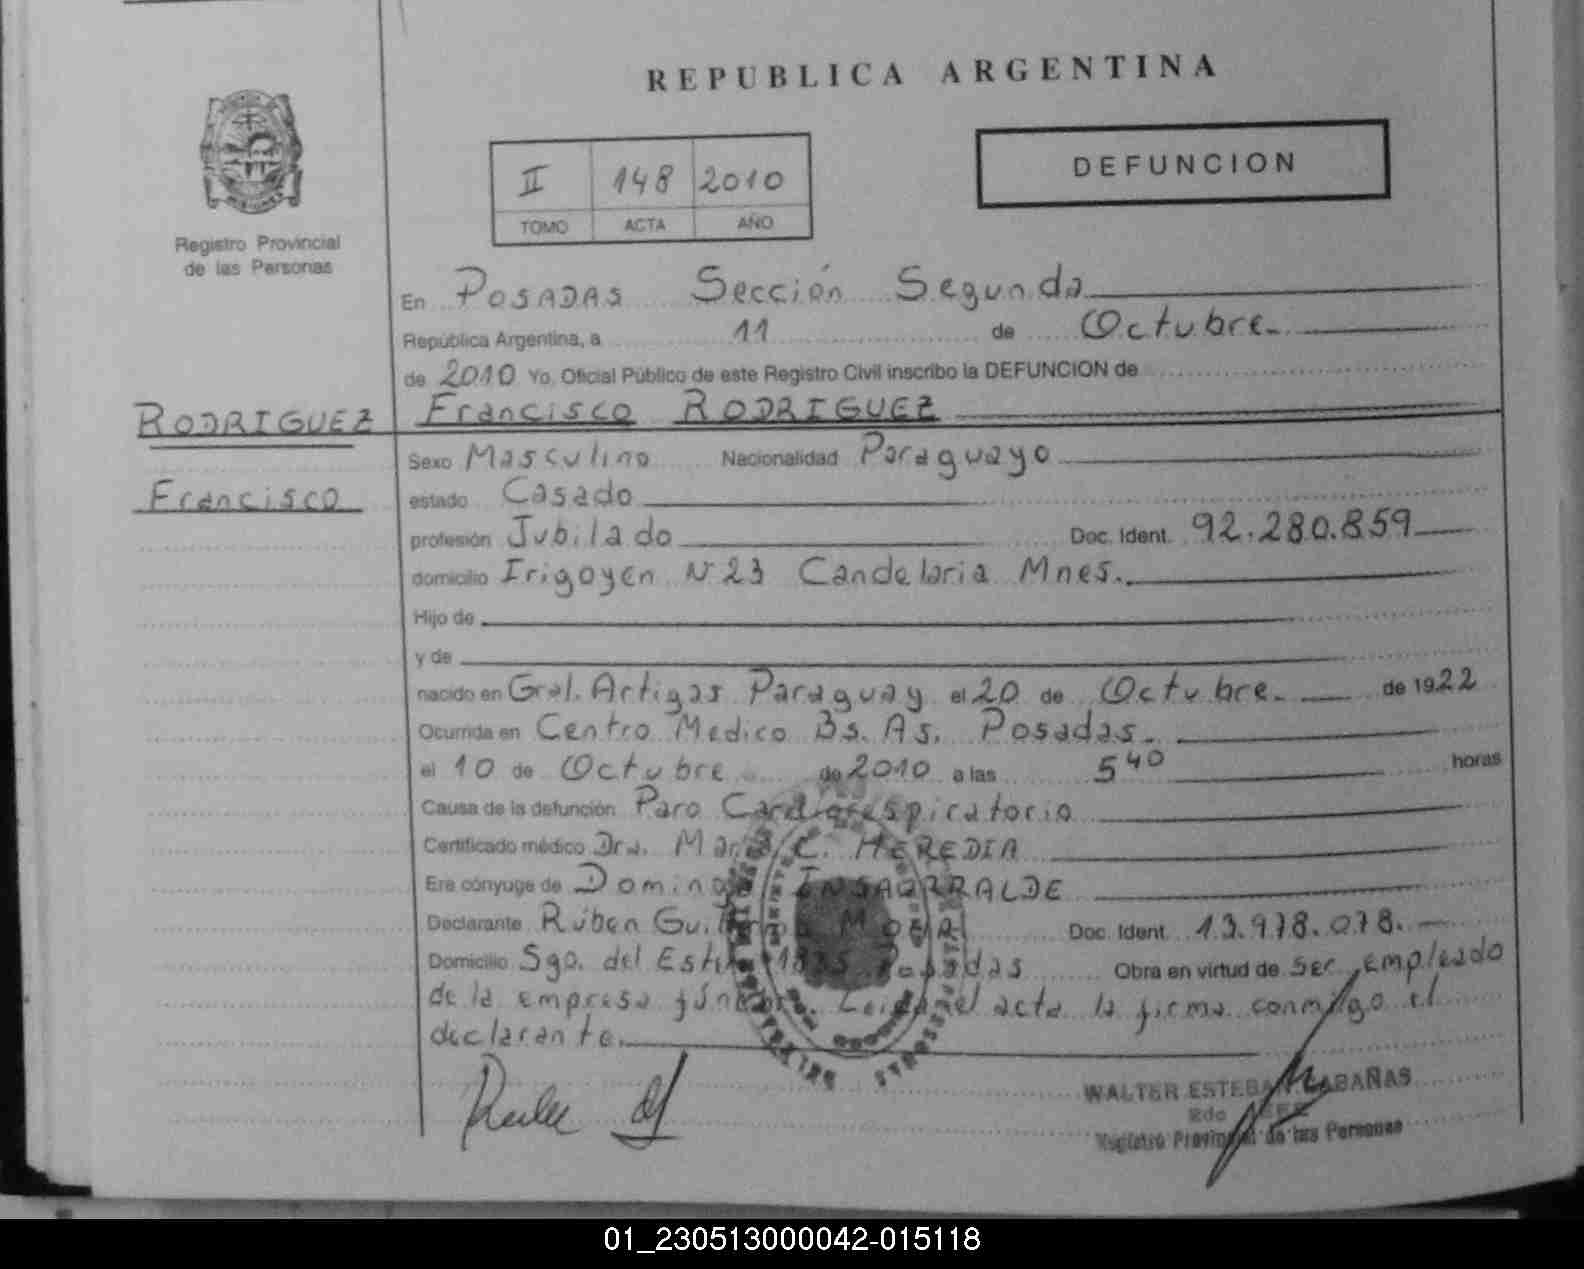 REPUBLICA ARGENTINA
DEFUNCION
II 148 2010
TOMO ACTA AÑO
Registro Provincial
de las Personas
En POSADAS Sección Segunda
República Argentina, a 11 de Octubre
de 2010 Yo, Oficial Público de este Registro Civil inscribo la DEFUNCION de
RODRIGUEZ
Francisco
Francisco RODRIGUEZ
Sexo Masculino Nacionalidad Paraguayo
estado Casado
profesión Jubilado Doc. Ident. 92.280.859
domicilio Irigoyen N° 23 Candelaria Mnes.
Hijo de
y de
nacido en Gral. Artigas Paraguay el 20 de Octubre de 1922
Ocurrida en Centro Medico Bs. As. Posadas.
el 10 de Octubre de 2010 a las 5 40 horas
Causa de la defunción Paro Cardiorespiratorio
Certificado médico Dra. María C. HEREDIA
Era cónyuge de INSAURRALDE
Declarante Rúben Doc. Ident. 13.978.078.
Domicilio Sgo. del Posadas Obra en virtud de ser empleado
de la empresa Leida el acta la firma conmigo el
declarante.
WALTER ESTEBAN CABAÑAS
Registro Provincial de las Personas
01_230513000042-015118